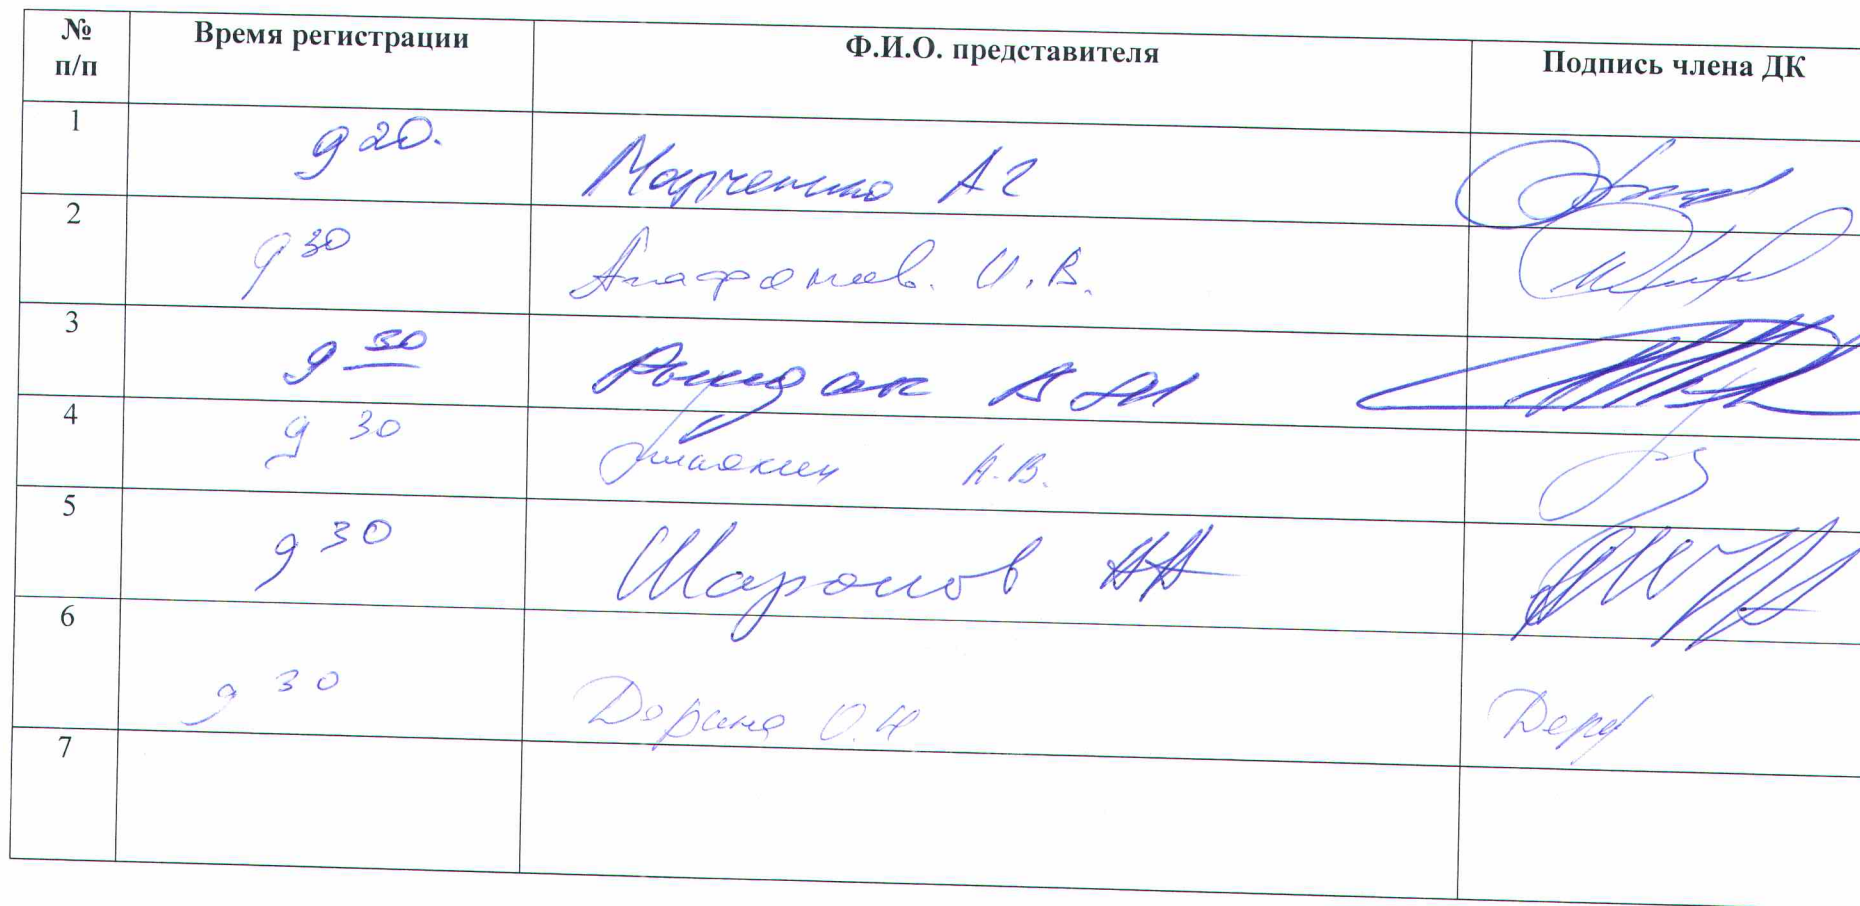 № п/п Время регистрации Ф.И.О. представителя Подпись члена ДК
1 9 20. Марченко А Г
2 9 30 Агафонов. И.В.
3 9 30 Рындак В И
4 9 30 А.В.
5 9 30 Шаронов АА
6 9 30 Дорина О.Н
7